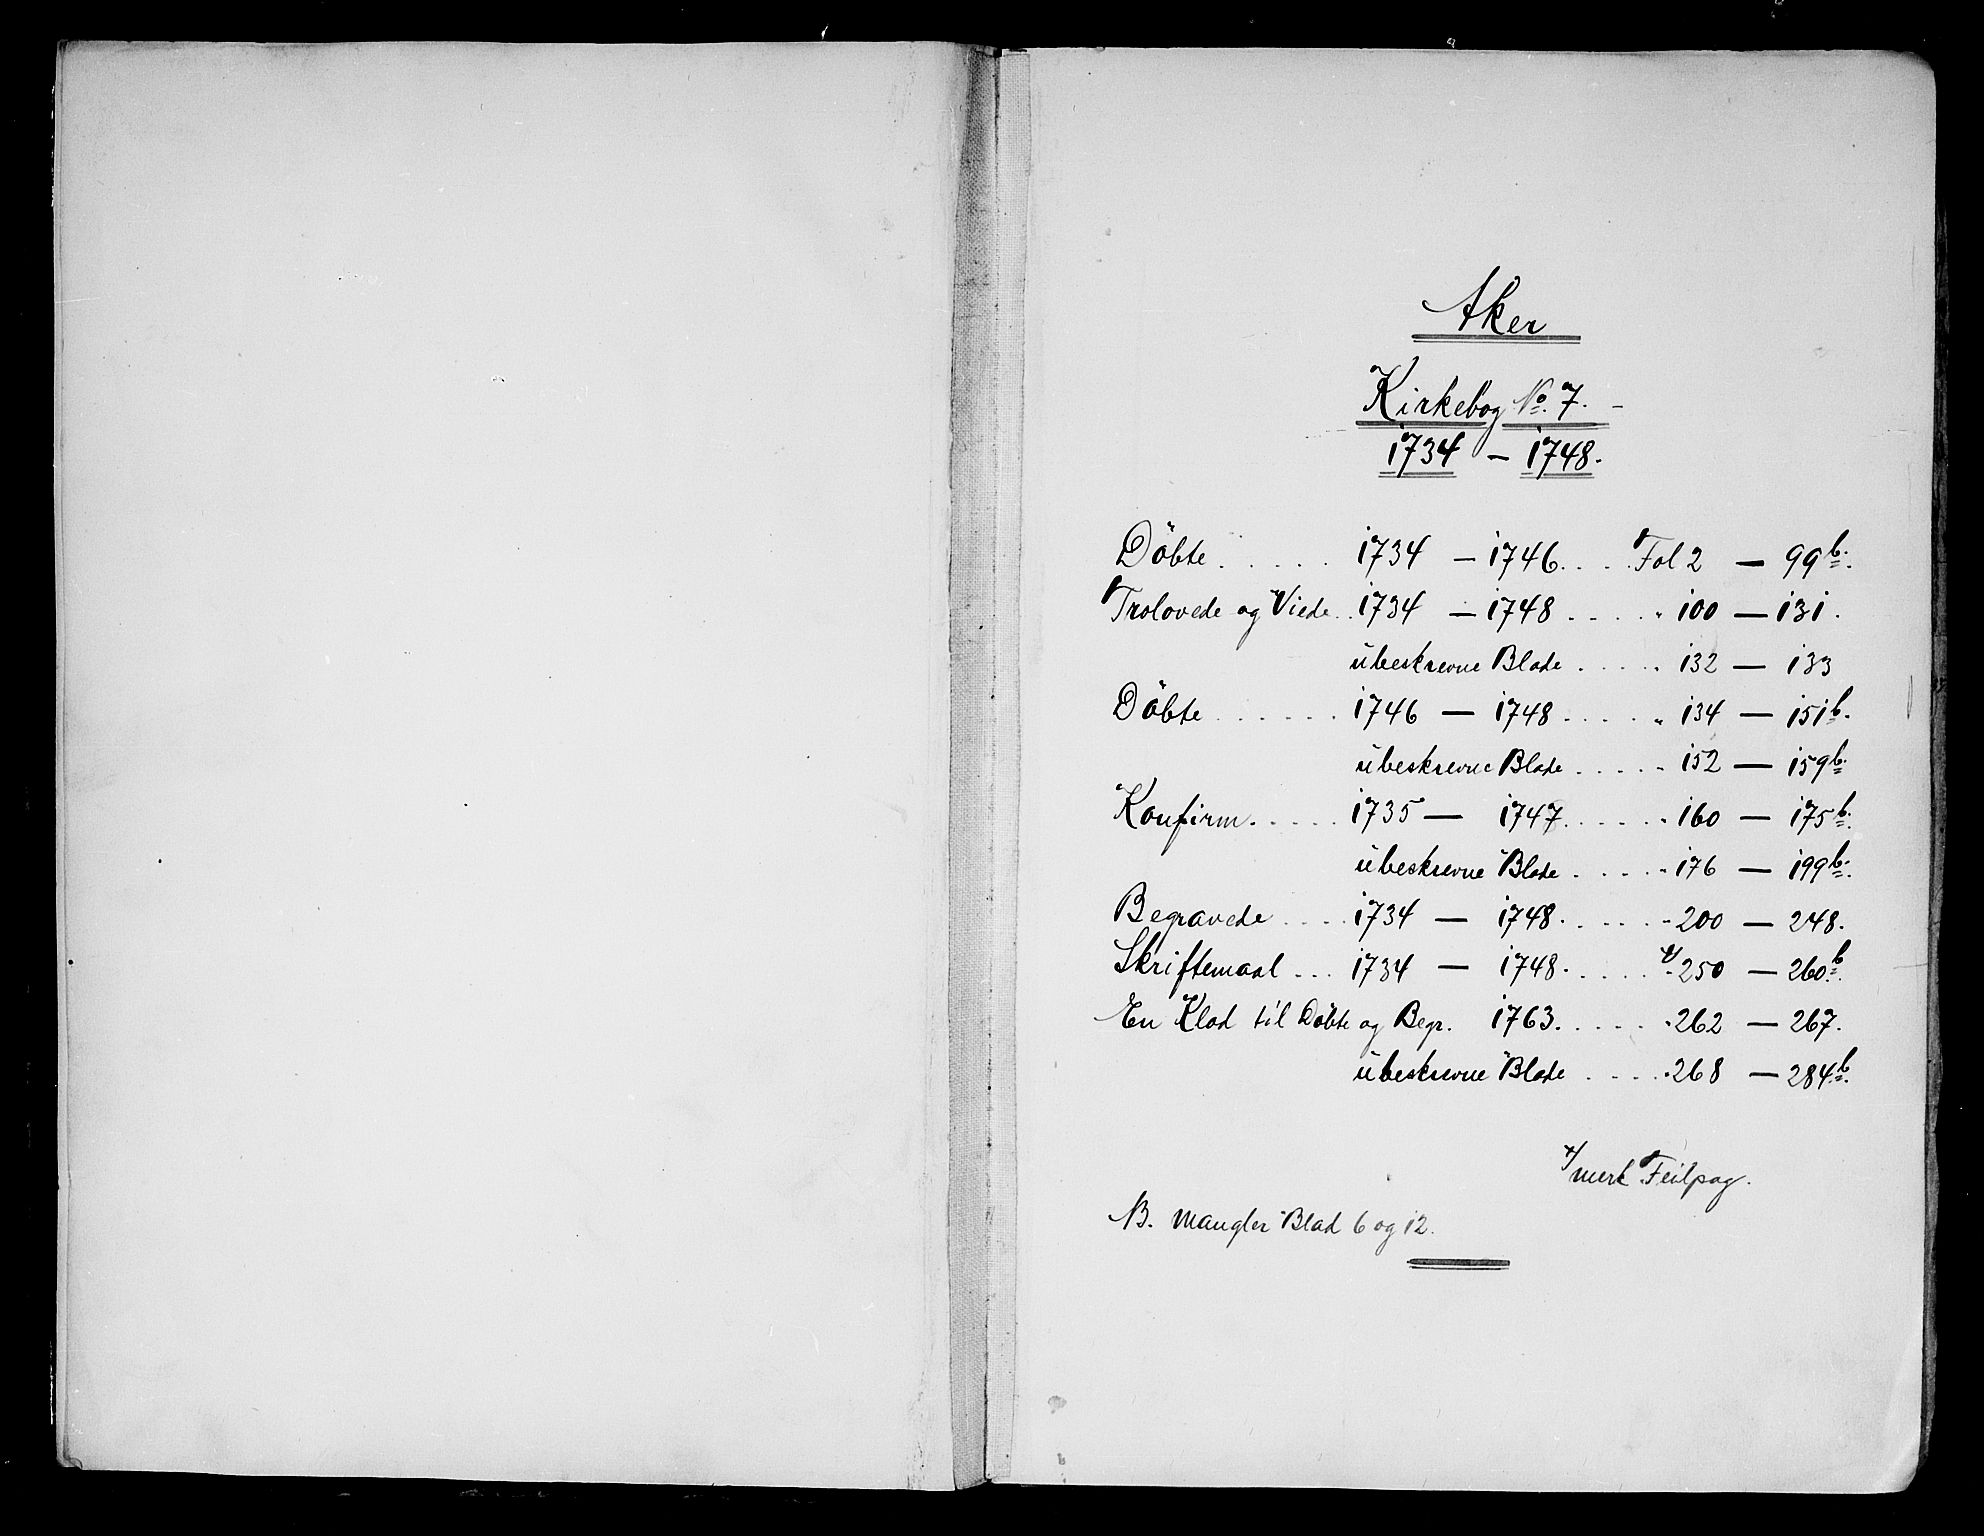 Aker
Kirkebog No. 7. -
1734 - 1748.
Döbte . . . . . 1734 - 1746. . . . Fol 2 - 99b.
Trolovede og Viede . . 1734 - 1748 . . . . . " 100 - 131.
übeskrevne Blade . . . . . 132 - 133
Döbte . . . . . . 1746 - 1748 . . . . " 134 - 151b.
übeskrevne Blade . . . . . 152 - 159b.
Konfirm. . . . . . 1735 - 1747. . . . . " 160 - 175b.
übeskrevne Blade . . . . " 176 - 199b.
Begravede . . . . 1734 - 1748. . . . . " 200 - 248.
Skriftemaal . . . 1734 - 1748. . . . . x/ " 250 - 260b.
En Klad til Döbte og Begr. 1763. . . . . " 262 - 267.
übeskrevne Blade . . . . " 268 - 284b.
x/ merk Feilpag.
NB. Mangler Blad 6 og 12.